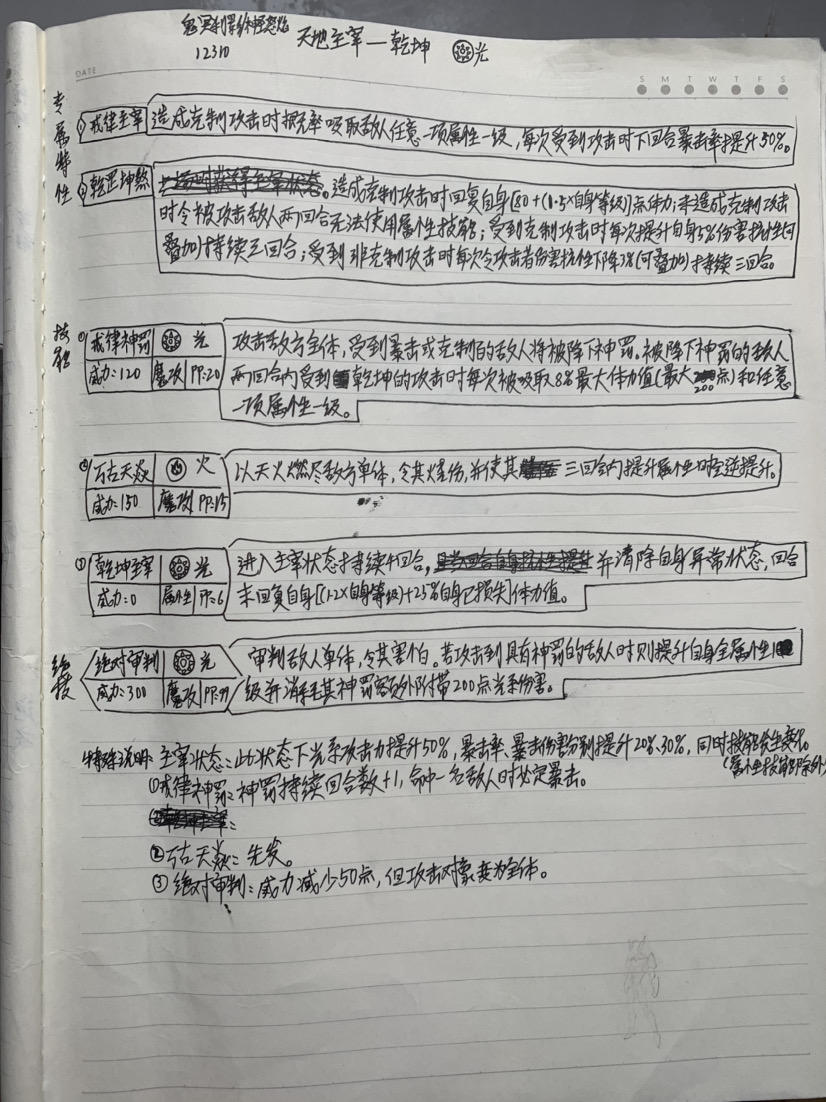 12310
天地主宰—乾坤 光
DATE
S M T W T F S
专属特性
① 戒律主宰 造成克制攻击时概率吸取敌人任意一项属性一级，每次受到攻击时下回合暴击率提升50%。
② 乾罡坤煞 造成克制攻击时回复自身[80+(0.5×自身等级)]点体力；未造成克制攻击
时令被攻击敌人两回合无法使用属性技能；受到克制攻击时每次提升自身5%伤害抗性(可
叠加)持续三回合；受到非克制攻击时每次令攻击者伤害抗性下降3%(可叠加)持续三回合。
技能
① 戒律神罚 光 攻击敌方全体，受到暴击或克制的敌人将被降下神罚。被降下神罚的敌人
威力：120 魔攻 PP:20 两回合内受到乾坤的攻击时每次被吸取8%最大体力值(最大200点)和任意
一项属性一级。
② 万古天焱 火 以天火燃尽敌方单体，令其烧伤，并使其三回合内提升属性时会逆提升。
威力：150 魔攻 PP:15
③ 乾坤主宰 光 进入主宰状态持续4回合，并清除自身异常状态，回合
威力：0 属性 PP:6 末回复自身[(1.2×自身等级)+25%自身已损失]体力值。
绝技
绝对审判 光 审判敌人单体，令其害怕。若攻击到具有神罚的敌人时则提升自身全属性1
威力：300 魔攻 PP:99 级并消耗其神罚额外附带200点光系伤害。
特殊说明：主宰状态：此状态下光系攻击力提升50%，暴击率、暴击伤害分别提升20%、30%，同时技能发生变化。
(属性技能除外)
①戒律神罚：神罚持续回合数+1，命中一名敌人时必定暴击。
②万古天焱：先发。
③绝对审判：威力减少50点，但攻击对象变为全体。